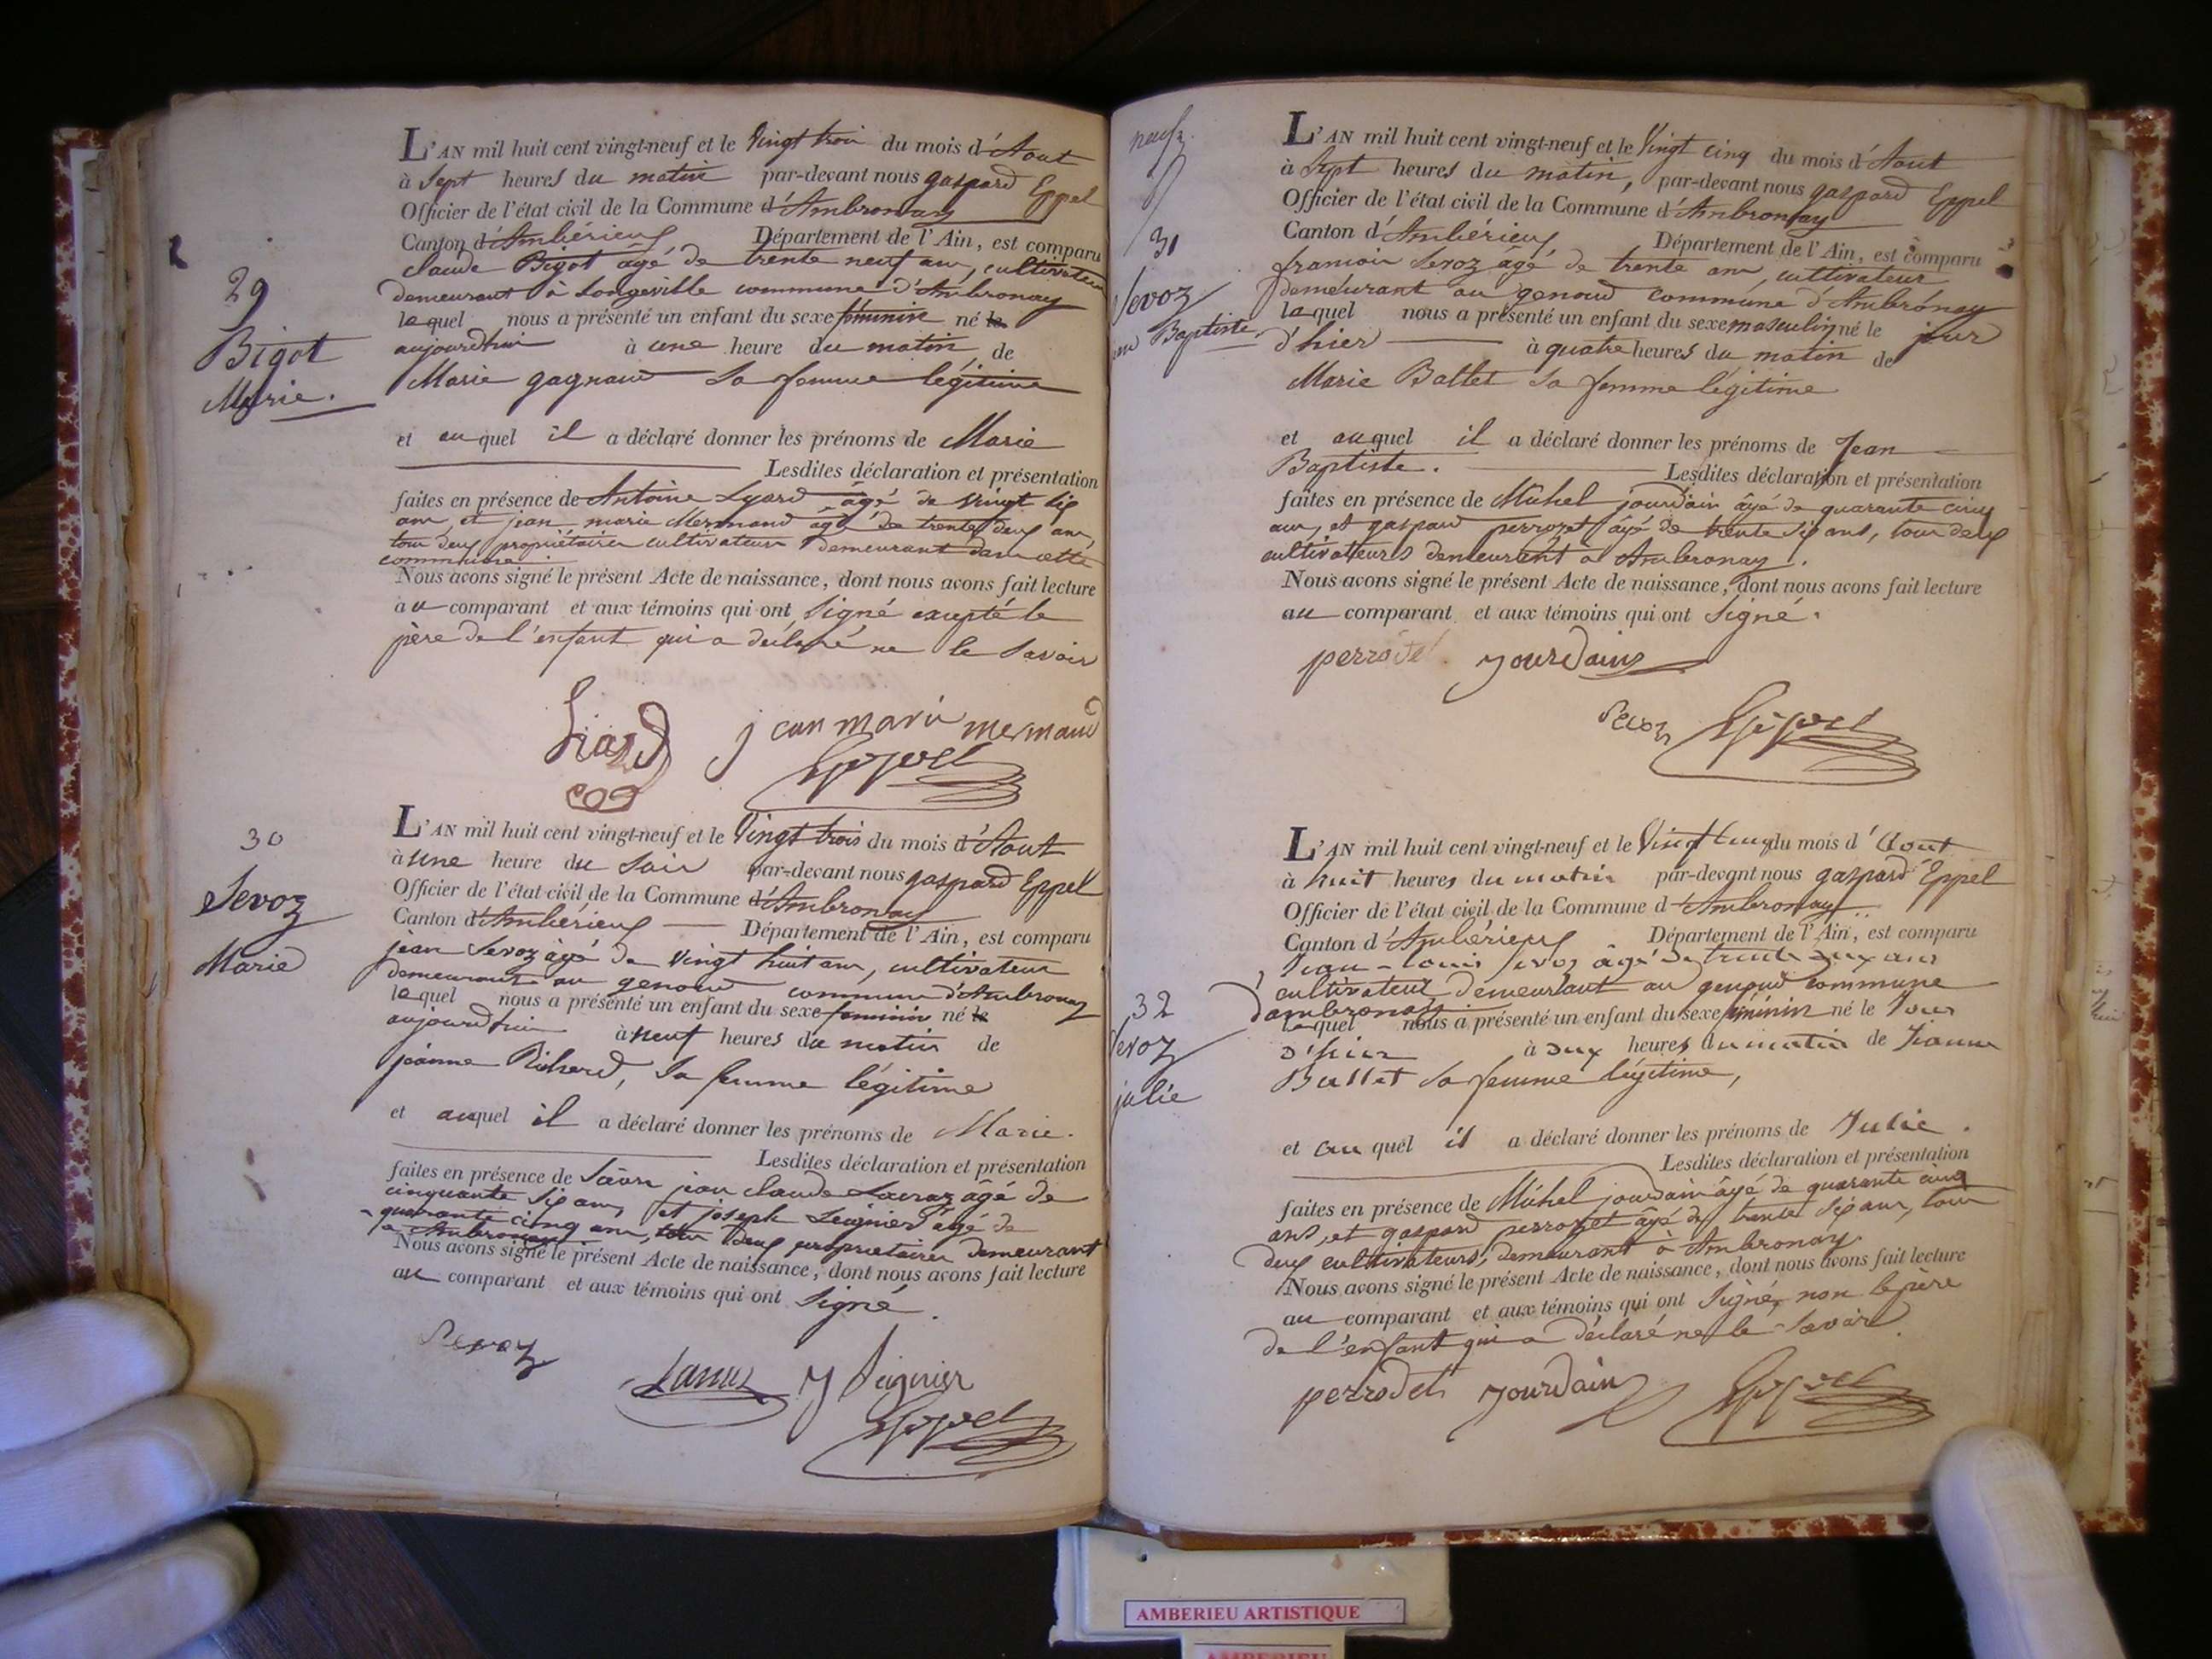 29
Bigot
Marie.
L'AN mil huit cent vingt-neuf et le Vingt trois du mois d'Aout
à Sept heures du matin par-devant nous gaspard Eppel
Officier de l'état civil de la Commune d'Ambronay
Canton d'Ambérieux Département de l'Ain, est comparu
claude Bigot âgé de trente neuf ans, cultivateur
demeurant à Longeville commune d'Ambronay
lequel nous a présenté un enfant du sexe féminin né le
aujourdhui à une heure du matin de
Marie gagnaud Sa femme légitime
et auquel il a déclaré donner les prénoms de Marie
Lesdites déclaration et présentation
faites en présence de Antoine Lyard âgé de vingt six
ans, et jean marie Mermand âgé de trente deux ans,
tous deux propriétaires cultivateurs demeurant dans cette
commune
Nous avons signé le présent Acte de naissance, dont nous avons fait lecture
au comparant et aux témoins qui ont Signé excepté le
père de l'enfant qui a déclaré ne le Savoir
Liard jean marie mermand
Eppel
30
Sevoz
Marie
L'AN mil huit cent vingt-neuf et le Vingt trois du mois d'Aout
à une heure du Soir par-devant nous gaspard Eppel
Officier de l'état civil de la Commune d'Ambronay
Canton d'Ambérieux Département de l'Ain, est comparu
jean Sevoz âgé de Vingt huit ans, cultivateur
demeurant au genoud commune d'Ambronay
lequel nous a présenté un enfant du sexe feminin né le
aujourdhui à neuf heures du matin de
jeanne Richerd, Sa femme légitime
et auquel il a déclaré donner les prénoms de Marie.
Lesdites déclaration et présentation
faites en présence de jean claude âgé de
cinquante Six ans, et joseph Seignier âgé de
quarante cinq ans, tous deux propriétaires demeurant
a Ambronay
Nous avons signé le présent Acte de naissance, dont nous avons fait lecture
au comparant et aux témoins qui ont Signé.
Sevoz
J Seignier
Eppel
neuf
31
Sevoz
Baptiste
L'AN mil huit cent vingt-neuf et le Vingt cinq du mois d'Aout
à Sept heures du matin, par-devant nous gaspard Eppel
Officier de l'état civil de la Commune d'Ambronay
Canton d'Ambérieux Département de l'Ain, est comparu
francois Sevoz âgé de trente ans, cultivateur
demeurant au genoud commune d'Ambronay
lequel nous a présenté un enfant du sexe masculin né le jour
d'hier à quatre heures du matin de
Marie Ballet Sa femme légitime
et auquel il a déclaré donner les prénoms de Jean
Baptiste. Lesdites déclaration et présentation
faites en présence de Michel jourdain âgé de quarante cinq
ans, et gaspard perrozet âgé de trente Six ans, tous deux
cultivateurs demeurant a Ambronay.
Nous avons signé le présent Acte de naissance, dont nous avons fait lecture
au comparant et aux témoins qui ont Signé.
perrodet jourdain
Sevoz Eppel
32
Sevoz
julie
L'AN mil huit cent vingt-neuf et le Vingt cinq du mois d'Aout
à huit heures du matin par-devant nous gaspard Eppel
Officier de l'état civil de la Commune d'Ambronay
Canton d'Ambérieux Département de l'Ain, est comparu
Jean-louis Sevoz âgé de trente deux ans
cultivateur demeurant au genoud commune
d'ambronay
lequel nous a présenté un enfant du sexe féminin né le Jour
d'hier à deux heures du matin de Jeanne
Ballet Sa femme légitime,
et auquel il a déclaré donner les prénoms de Julie.
Lesdites déclaration et présentation
faites en présence de Michel jourdain âgé de quarante cinq
ans, et gaspard perrozet âgé de trente Six ans, tous
deux cultivateurs, demeurant à Ambronay.
Nous avons signé le présent Acte de naissance, dont nous avons fait lecture
au comparant et aux témoins qui ont Signé, non le père
de l'enfant qui a déclaré ne le Savoir
perrodet jourdain Eppel
AMBERIEU ARTISTIQUE
AMBERIEU